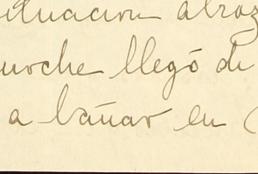 situacion atroz
noche llegó de
a bañar en (